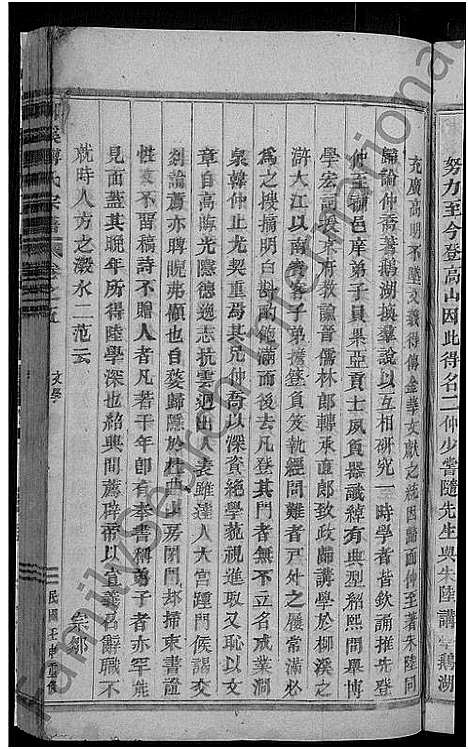 努力至今登高山因此得名二仲少嘗隨先生與朱陸講學鵝湖
充廣高明不墜又獲得傳金華文獻之統因歸面仲至著朱陸同
歸論仲喬著鵝湖換羣說以互相研究一時學者皆欽誦推先登
仲至聊邑庠弟子員果亞貢士夙負器識綽有典型紹熙間舉博
學宏詞授本府教諭晉儒林郎轉承直郎致政歸講學於柳溪江
滸大江以南貴客子弟擔簦負笈執經問難者戸外之履常滿必
爲之搜摘明白斟酌飽滿而後去凡登其門者無不立名成業澗
泉韓仲止尤契重焉其兄仲喬以深資絕學藐視進取又恥以文
章自高蓐光隱德逸志抗雲迥出人表雖達人大官踵門候謁交
剡論薦亦聘睨弗顧也自婺歸隱於杜西山房閉門却掃束書證
性文不習稿詩不贈人者凡若干年卽有奉書稱弟子者亦罕能
見面蓋其晚年所得陸學深也紹興間薦辟帝以宣義名辭職不
就時人方之瀲水二范云
柳溪傅氏宗譜 卷之五
文學
民國壬申重修
FamilySearch International